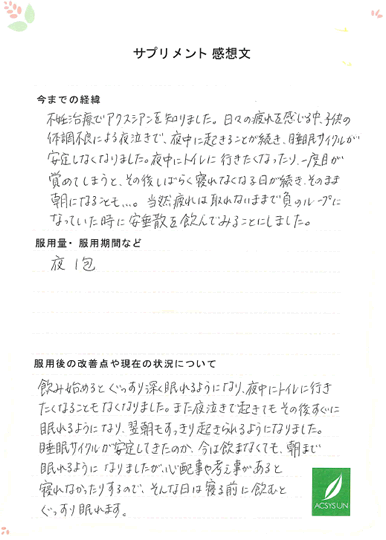 サプリメント 感想文
今までの経緯
不妊治療でアクスシアンを知りました。日々の疲れを感じる中、子供の
体調不良による夜泣きで、夜中に起きることが続き、睡眠サイクルが
安定しなくなりました。夜中にトイレに行きたくなったり、一度目が
覚めてしまうと、その後しばらく寝れなくなる日が続き、そのまま
朝になることも…。当然疲れは取れないままで負のループに
なっていた時に安垂散を飲んでみることにしました。
服用量・服用期間など
夜 1包
服用後の改善点や現在の状況について
飲み始めるとぐっすり深く眠れるようになり、夜中にトイレに行き
たくなることもなくなりました。また夜泣きで起きてもその後すぐに
眠れるようになり、翌朝もすっきり起きられるようになりました。
睡眠サイクルが安定してきたのか、今は飲まなくても、朝まで
眠れるようになりましたが、心配事や考え事があると
寝れなかったりするので、そんな日は寝る前に飲むと
ぐっすり眠れます。
ACSYSUN